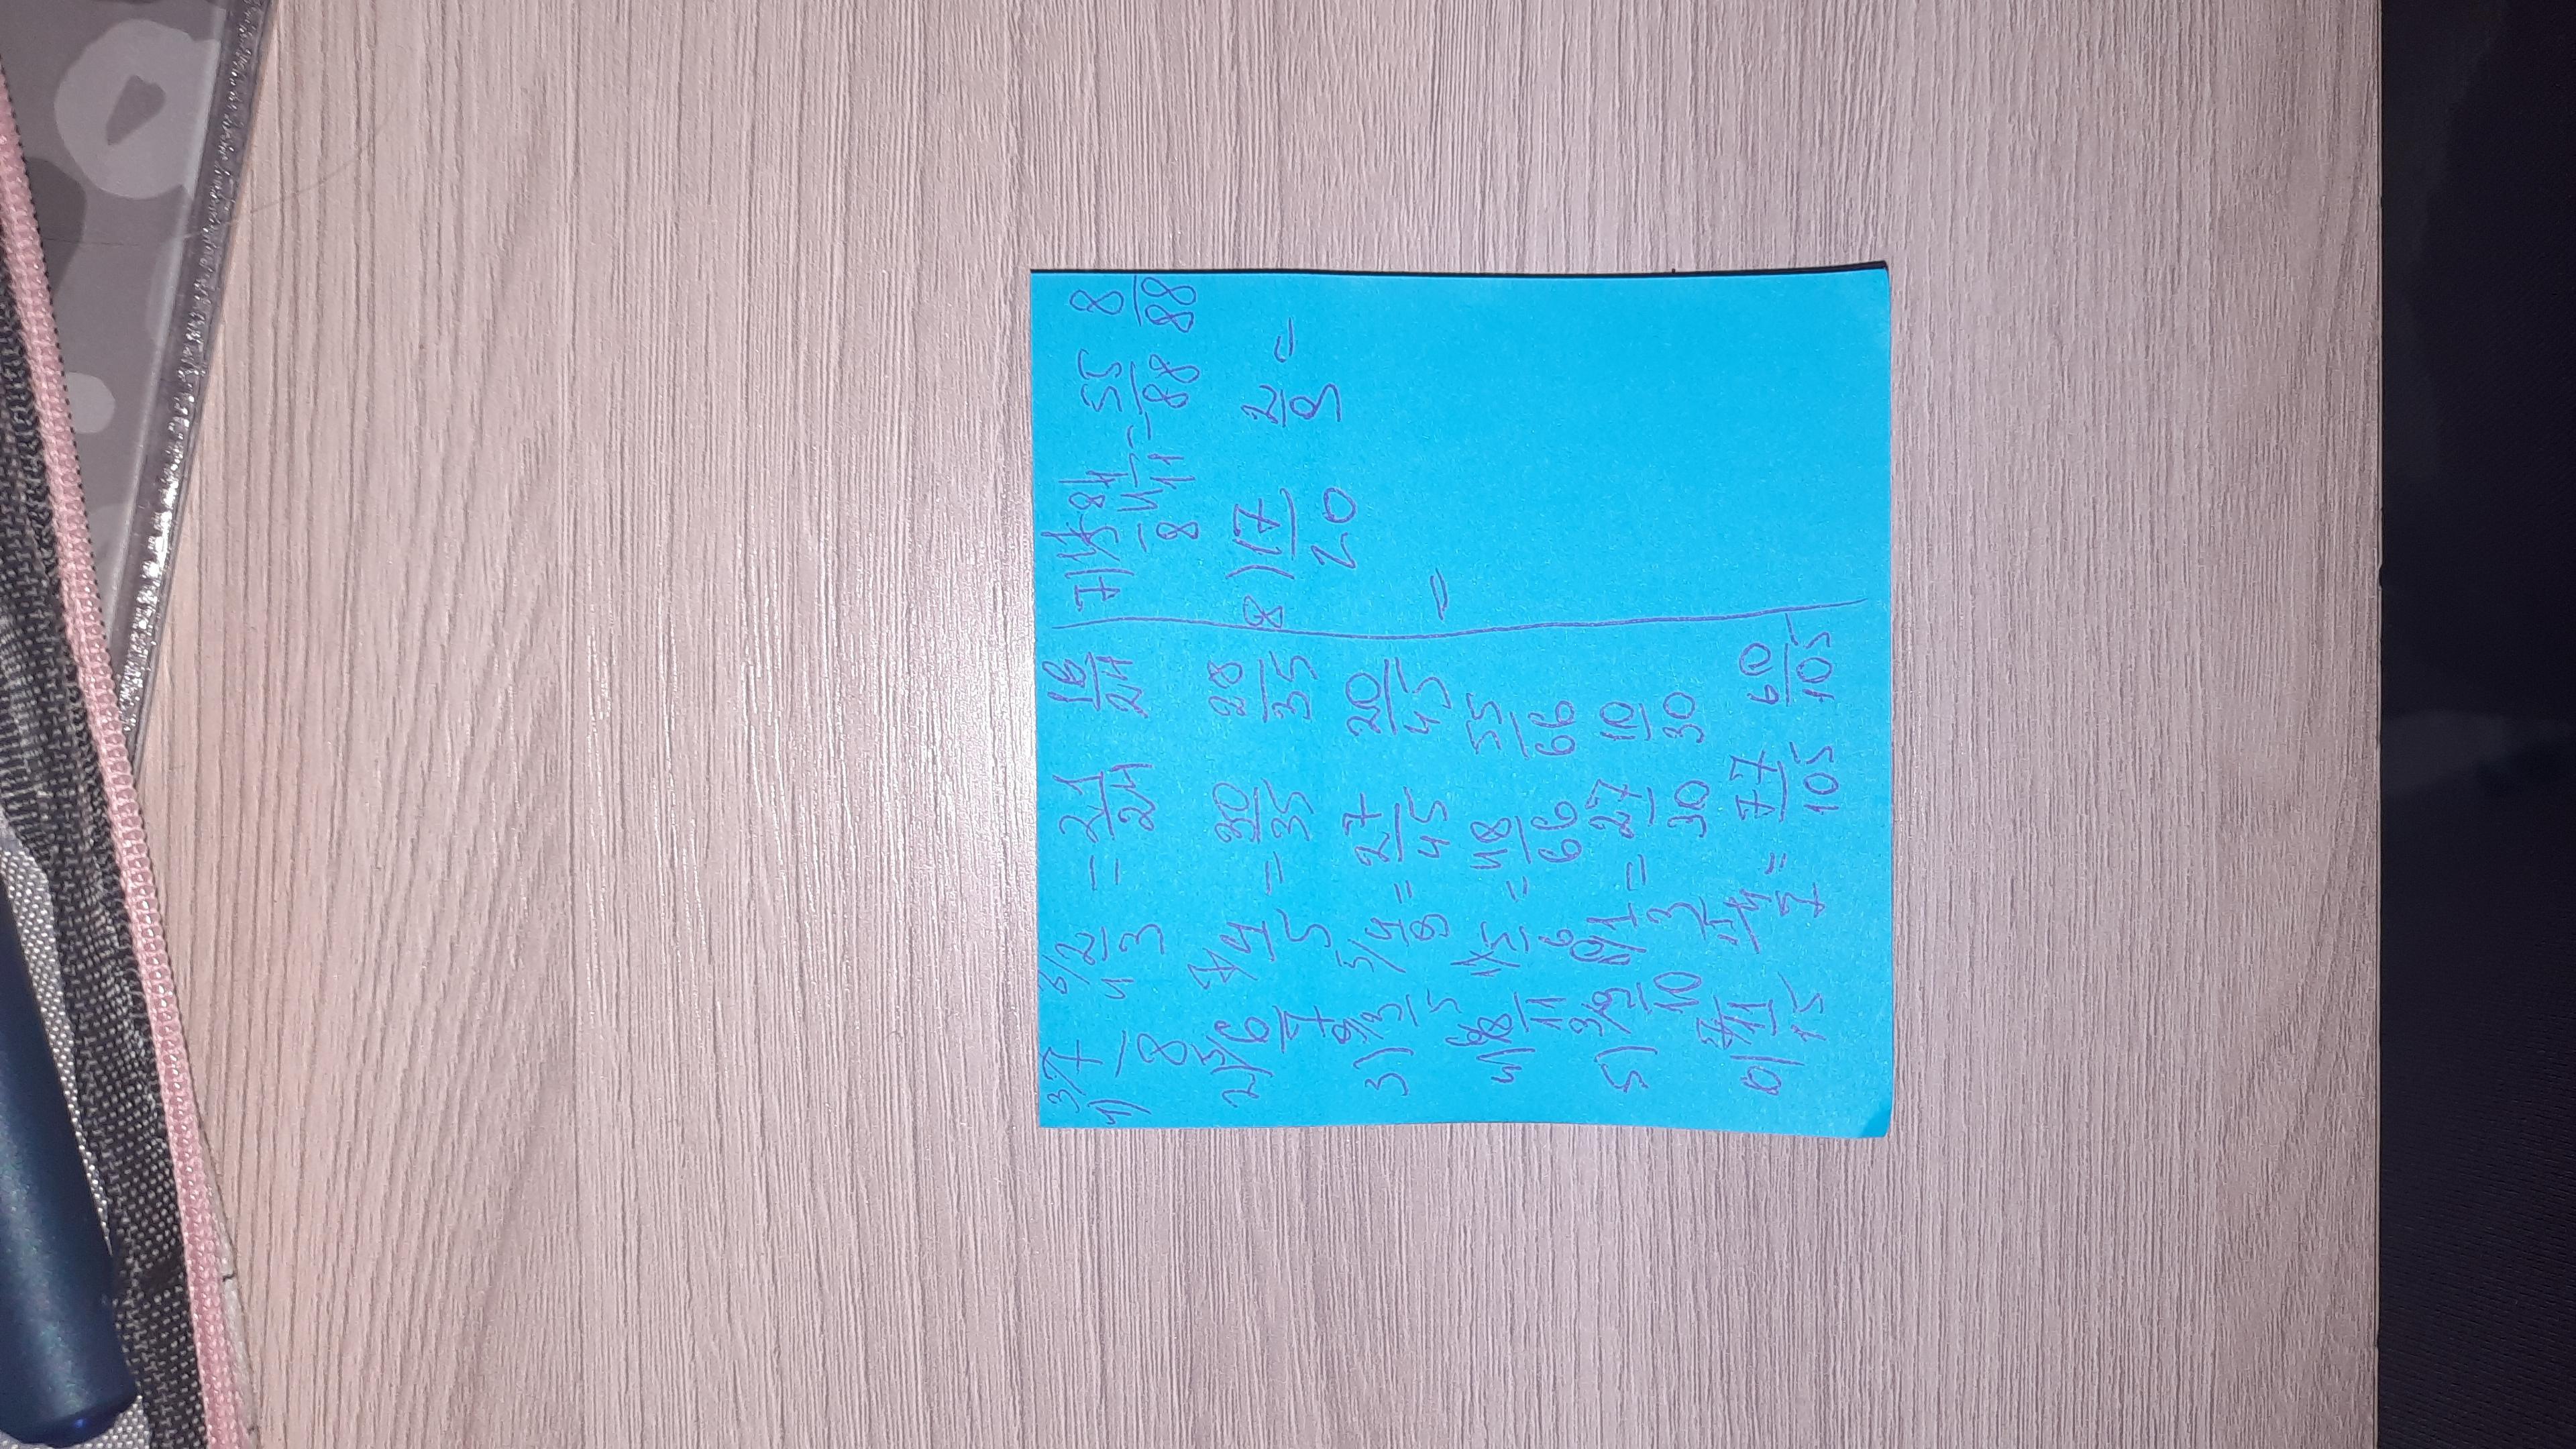 1) 3/ 7/8 8/ 2/3 = 21/24 16/24
2) 5/ 6/7 7/ 4/5 = 30/35 28/35
3) 9/ 3/5 5/ 4/9 = 27/45 20/45
4) 6/ 8/11 11/ 5/6 = 48/66 55/66
5) 3/ 9/10 10/ 1/3 = 27/30 10/30
6) 7/ 11/15 15/ 4/7 = 77/105 60/105
7) 11/ 5/8 8/ 1/11 = 55/88 8/88
8) 17/20 2/9 =
=